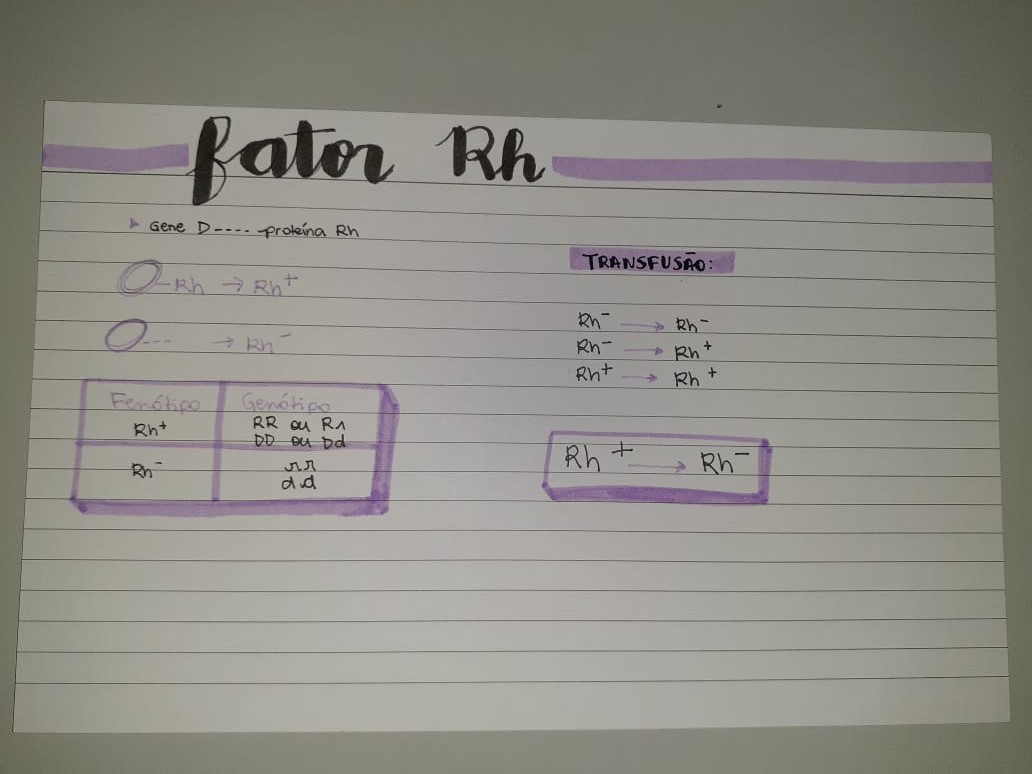 fator Rh
Gene D---- proteína Rh
Rh → Rh⁺
--- → Rh⁻
Fenótipo Genótipo
Rh⁺ RR ou Rr
DD ou Dd
Rh⁻ rr
dd
TRANSFUSÃO:
Rh⁻ → Rh⁻
Rh⁻ → Rh⁺
Rh⁺ → Rh⁺
Rh⁺ → Rh⁻